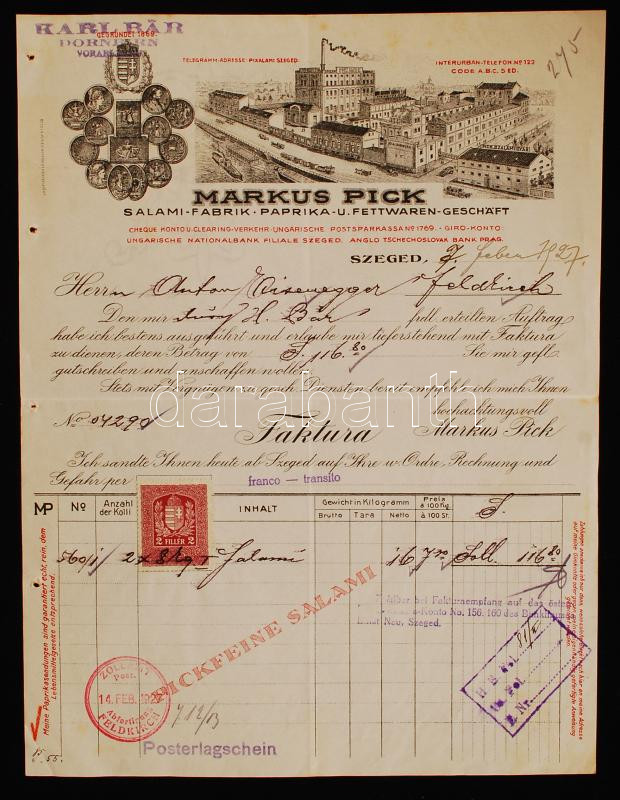 KARL BÄR
GEGRÜNDET 1869.
DORNBIRN
TELEGRAMM-ADRESSE: PIXALAMI SZEGED.
INTERURBAN-TELEFON Nº 122
CODE A.B.C. 5 ED.
275
MARKUS PICK
SALAMI-FABRIK·PAPRIKA-U. FETTWAREN-GESCHÄFT
CHEQUE KONTO U. CLEARING-VERKEHR: UNGARISCHE POSTSPARKASSA Nº 1769. - GIRO-KONTO
UNGARISCHE NATIONALBANK FILIALE SZEGED. ANGLO TSCHECHOSLOVAK BANK PRAG.
SZEGED, 7. feber 1927.
Herrn Anton Feldkirch
Den mir durch H. Bär frdl. erteilten Auftrag
habe ich bestens ausgeführt und erlaube mir tieferstehend mit Faktura
zu dienen, deren Betrag von S. 116.80 Sie mir gefl.
gutschreiben und anschaffen wollen.
Stets mit Vergnügen zu gesch. Diensten bereit empfehle ich mich Ihnen
hochachtungsvoll
No 04290 Faktura Markus Pick
Ich sandte Ihnen heute ab Szeged auf Ihre w. Ordre, Rechnung und
Gefahr per franco — transito
MP Nº Anzahl der Kolli INHALT Gewicht in Kilogramm Brutto Tara Netto Preis à 100 Kg. à 100 St. S.
2 FILLÉR 2
560/1 2 x 8 Kg Salami 16 7.30 Soll. 116.80
Meine Paprikasendungen sind garantiert echt, rein, dem
Lebensmittelgesetze entsprechend.
PICKFEINE SALAMI
bei Fakturaempfang auf das
Konto No. 156.160 des Bankhauses
Neu, Szeged.
ZOLLAMT
Post.
14. FEB. 1927
FELDKIRCH
712/13
Posterlagschein
15
darabanth